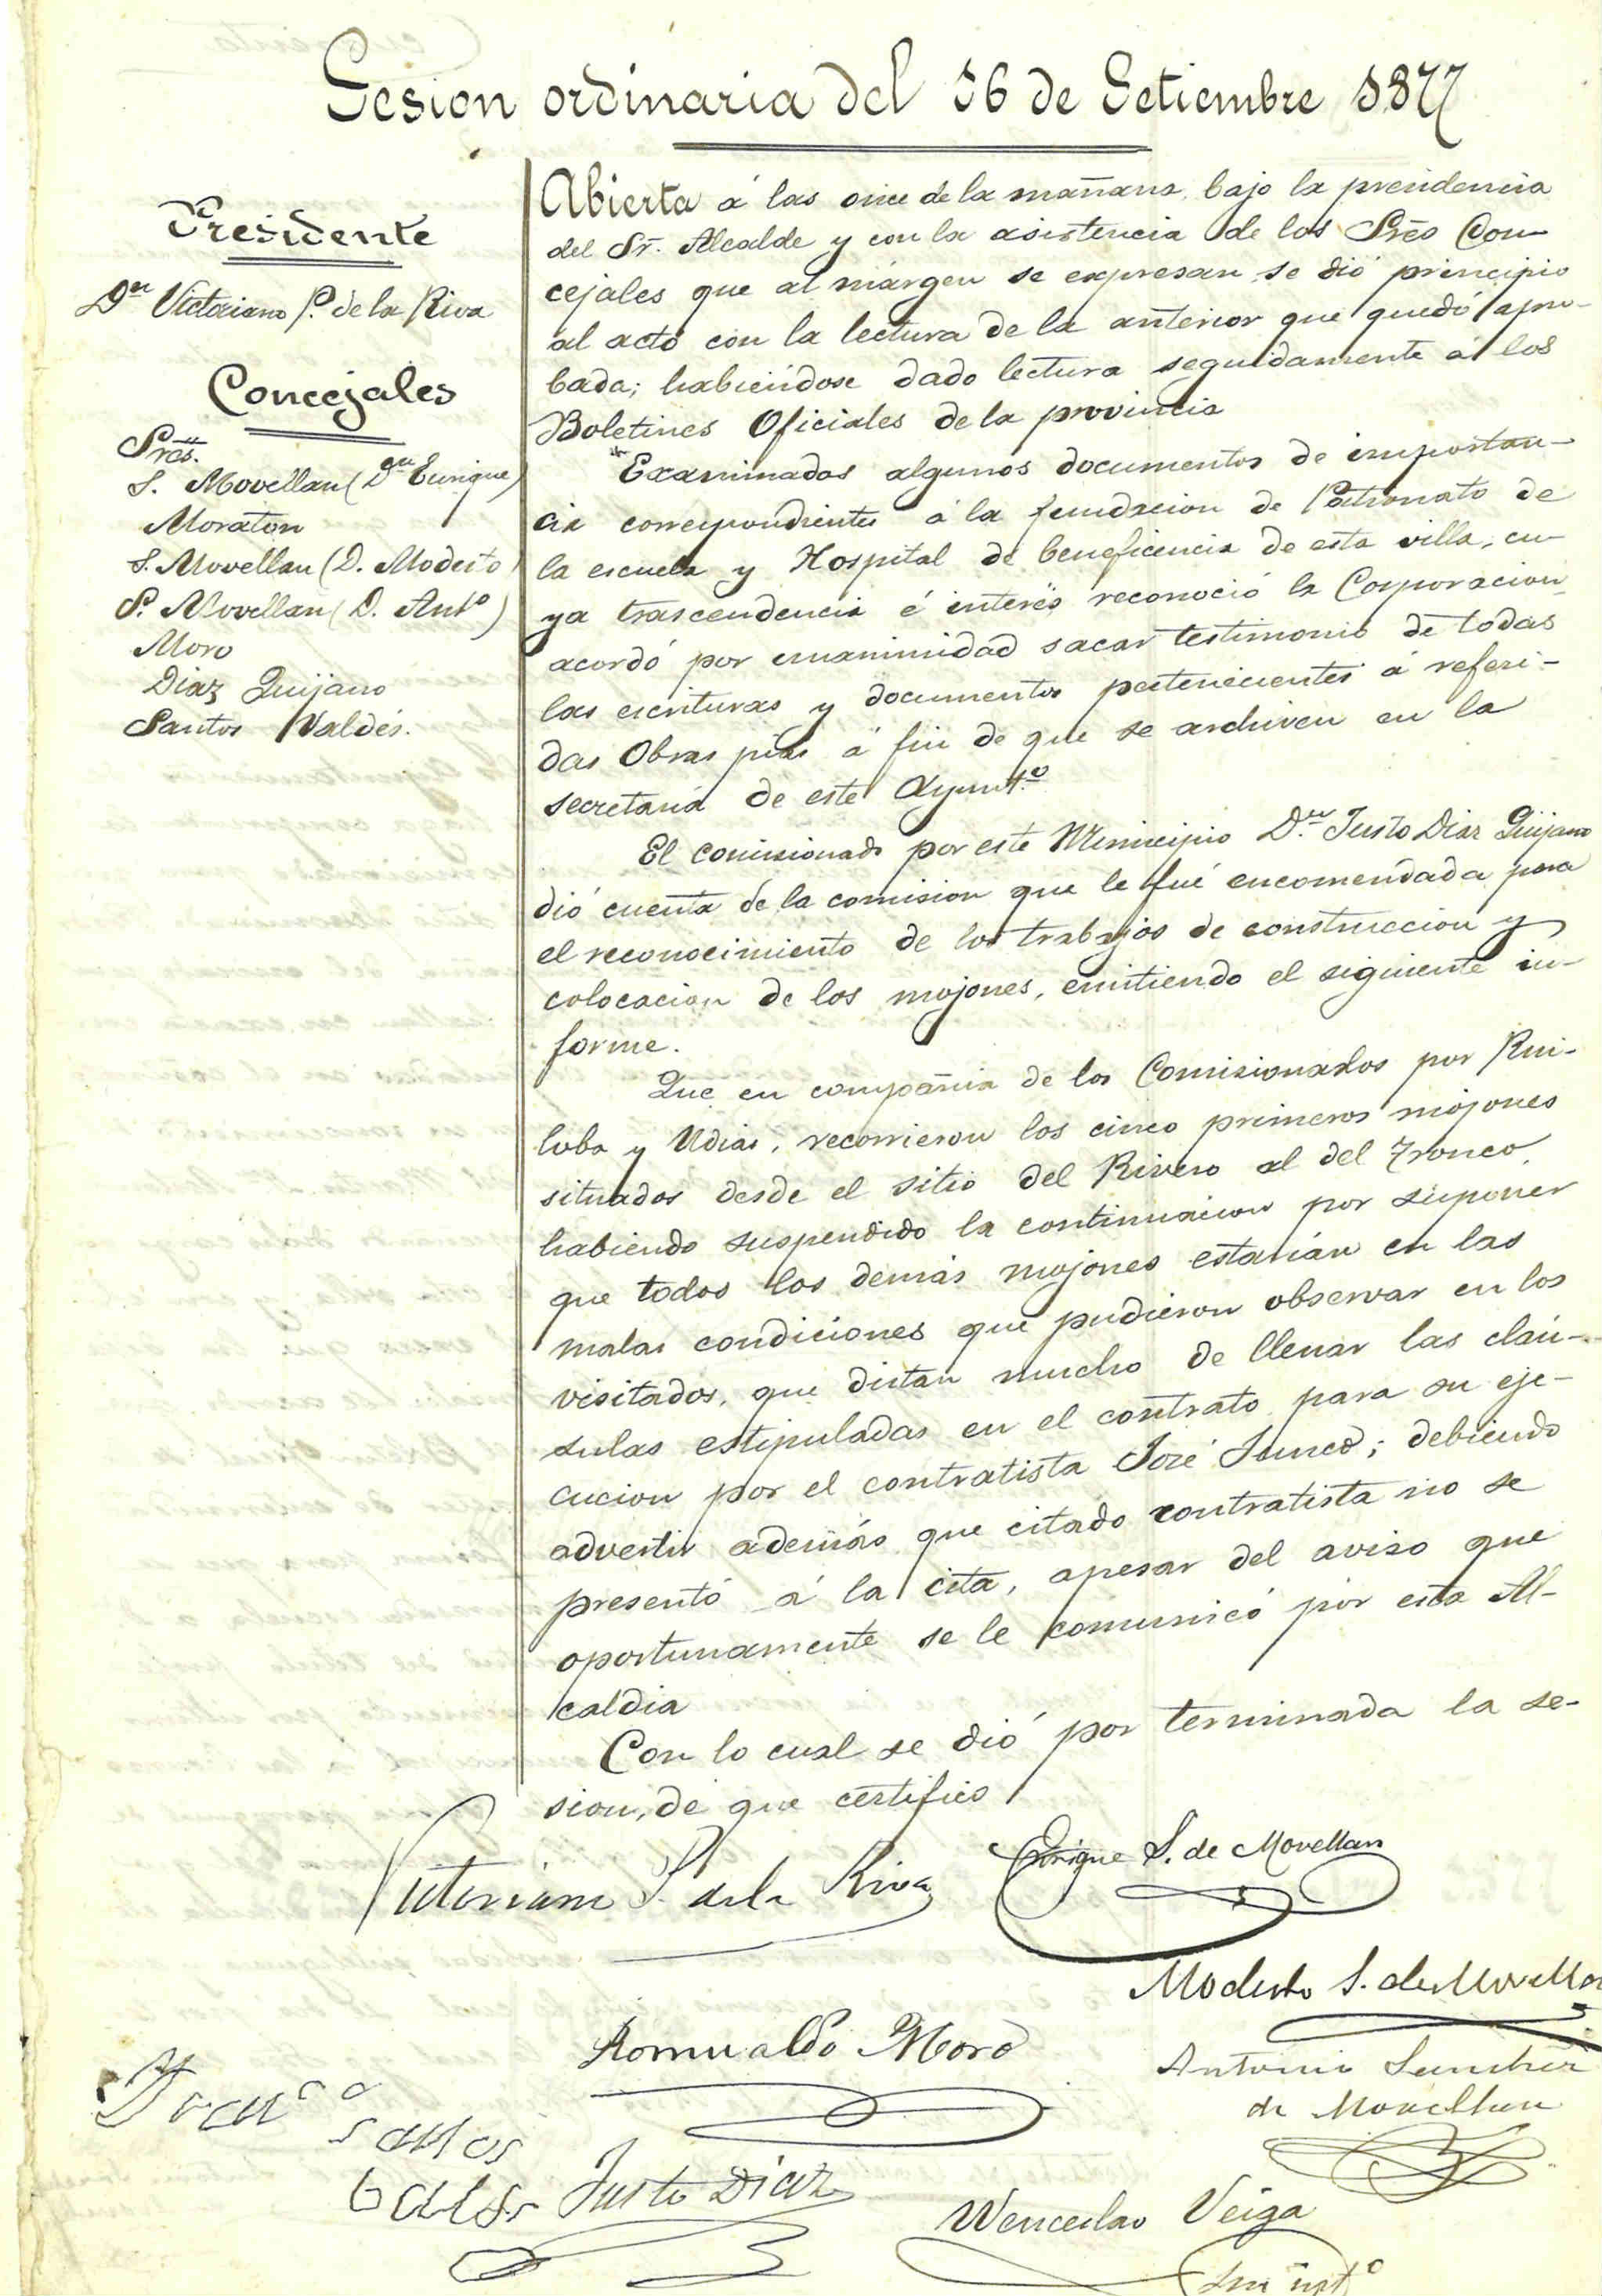 Sesion ordinaria del 16 de Setiembre 1877
Presidente
Dn Victoriano P. de la Riva
Concejales
Sres.
S. Movellan (Dn Enrique)
Moraton
S. Movellan (D. Modesto)
S. Movellan (D. Anto)
Moro
Diaz Quijano
Santos Valdés.
Abierta á las once de la mañana, bajo la presidencia
del Sr. Alcalde y con la asistencia de los Sres Con-
cejales que al márgen se expresan se dió principio
al acto con la lectura de la anterior que quedó apro-
bada; habiéndose dado lectura seguidamente á los
Boletines Oficiales de la provincia
Examinados algunos documentos de importan-
cia correspondientes á la fundacion de Patronato de
la escuela y Hospital de beneficencia de esta villa, cu-
ya trascendencia é interés reconoció la Corporacion,
acordó por unanimidad sacar testimonio de todas
las escrituras y documentos pertenecientes á referi-
das Obras pias á fin de que se archiven en la
secretaría de este Ayunto
El comisionado por este Municipio Dn Justo Diaz Quijano
dió cuenta de la comision que le fué encomendada para
el reconocimiento de los trabajos de construccion y
colocacion de los mojones, emitiendo el siguiente in-
forme.
Que en compañia de los Comisionados por Rui-
loba y Udias, recorrieron los cinco primeros mojones
situados desde el sitio del Rivero al del Tronco,
habiendo suspendido la continuacion por suponer
que todos los demás mojones estarían en las
malas condiciones que pudieron observar en los
visitados, que distan mucho de llenar las cláu-
sulas estipuladas en el contrato para su eje-
cucion por el contratista José Junco; debiendo
advertir además que citado contratista no se
presentó á la cita, apesar del aviso que
oportunamente se le comunicó por esta Al-
caldia
Con lo cual se dió por terminada la se-
sion, de que certifico
Victoriano P. de la Riva
Enrique S. de Movellan
Modesto S. de Movellan
Romualdo Moro
Antonio Sanchez
de Movellan
Franco
Santos
balds
Justo Diaz
Wenceslao Veiga